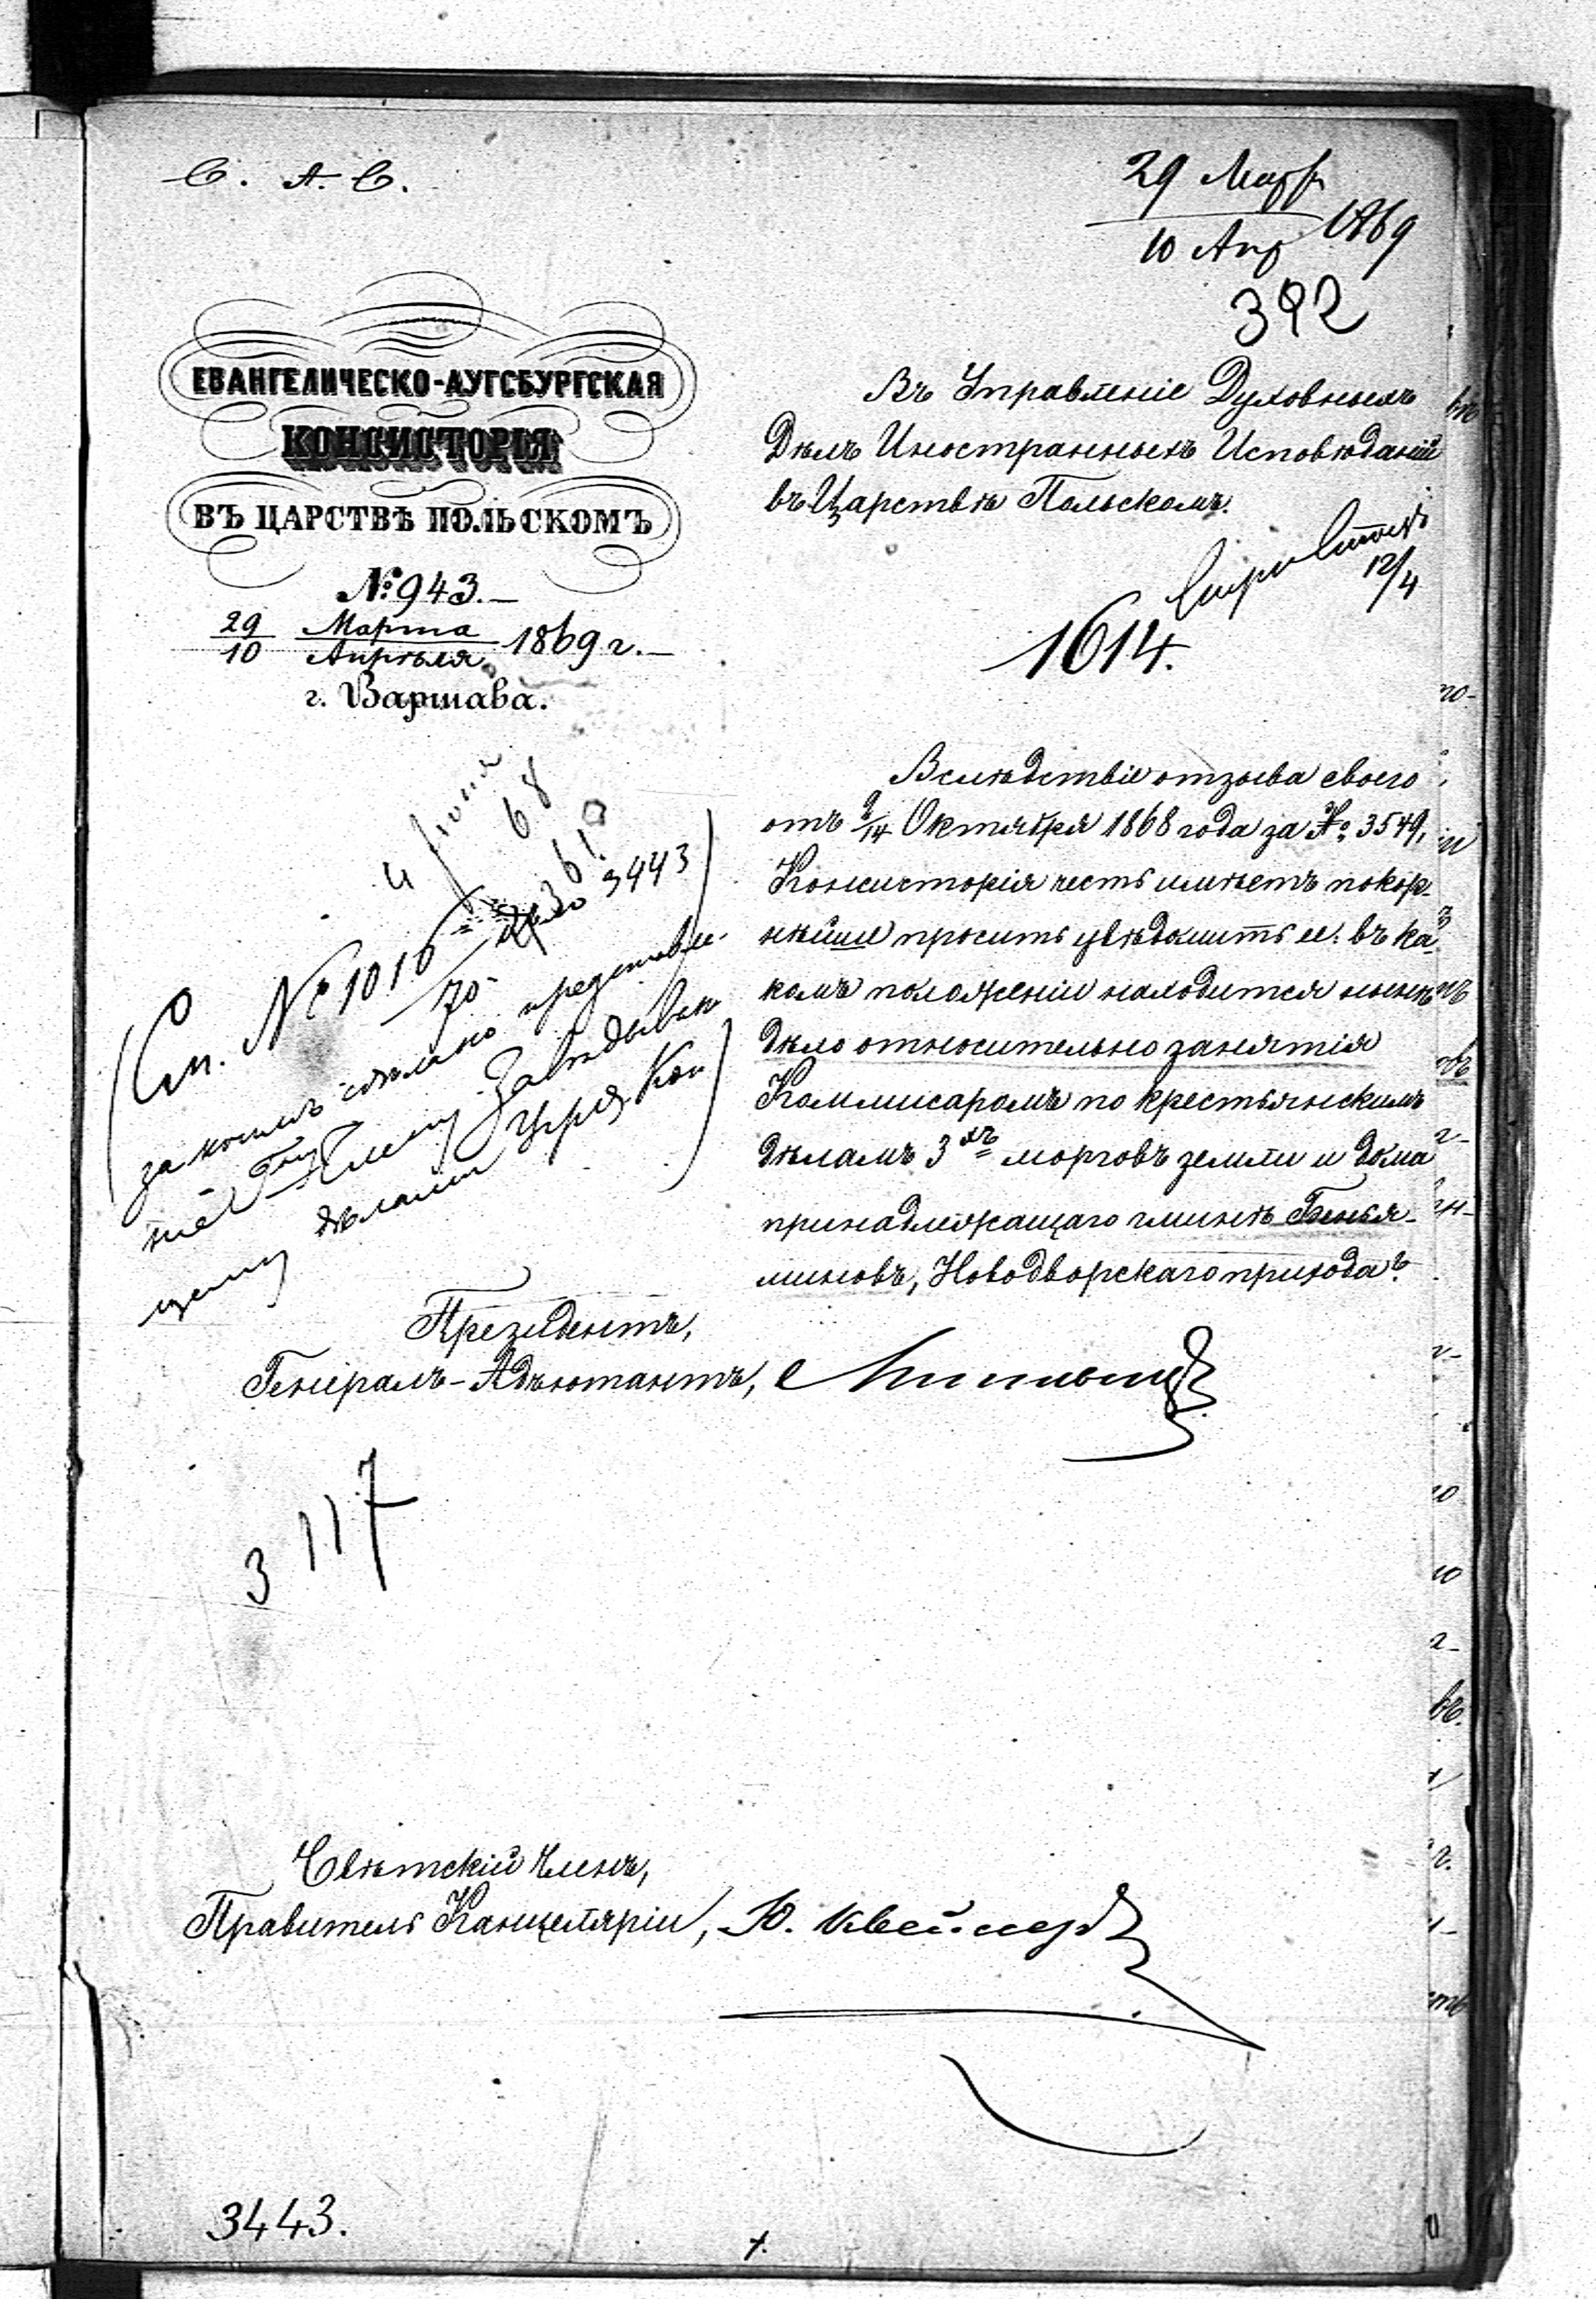 С. А. С.
29 Мар
10 Апр 1869
392
ЕВАНГЕЛИЧЕСКО-АУГСБУРГСКАЯ
КОНСИСТОРІЯ
ВЪ ЦАРСТВѢ ПОЛЬСКОМЪ
№ 943.—
29 Марта
10 Апрѣля 1869 г.—
г. Варшава.
Въ Управленіе Духовныхъ
Дѣлъ Иностранныхъ Исповѣданій
въ Царствѣ Польскомъ.
12/4
1614.
Вслѣдствіе отзыва своего
отъ 2/14 Октября 1868 года за № 3549,
Консисторія честь имѣетъ покор-
нѣйше просить увѣдомить ее: въ ка-
комъ положеніи находится нынѣ
дѣло относительно занятія
Коммисаромъ по крестьянскимъ
дѣламъ 3хъ морговъ земли и дома
принадлежащаго гминѣ Бенья-
миновъ, Новодворскаго прихода?
См. № 1010
70
3443
за коимъ сдѣлано представле-
ніе
дѣлами
Президентъ,
Генералъ-Адъютантъ,
3117
Свѣтскій Членъ,
Правитель Канцеляріи,
3443.